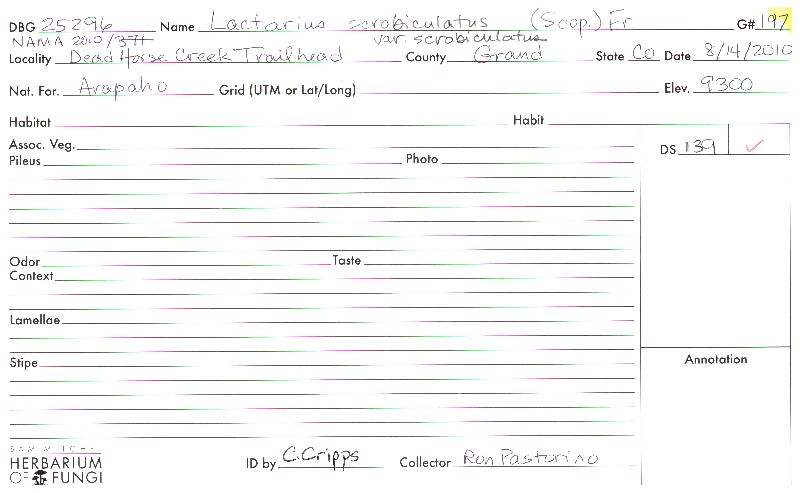 DBG 25296 Name Lactarius scrobiculatus (Scop.) Fr G# 197
NAMA 2010/371 var. scrobiculatus
Locality Dead Horse Creek Trailhead County Grand State Co Date 8/14/2010
Nat. For. Arapaho Grid (UTM or Lat/Long) Elev. 9300
Habitat Habit
Assoc. Veg. DS 139 ✓
Pileus Photo
Odor Taste
Context
Lamellae
Stipe Annotation
SAM MITCHEL
HERBARIUM
OF FUNGI ID by C. Cripps Collector Ron Pastorino